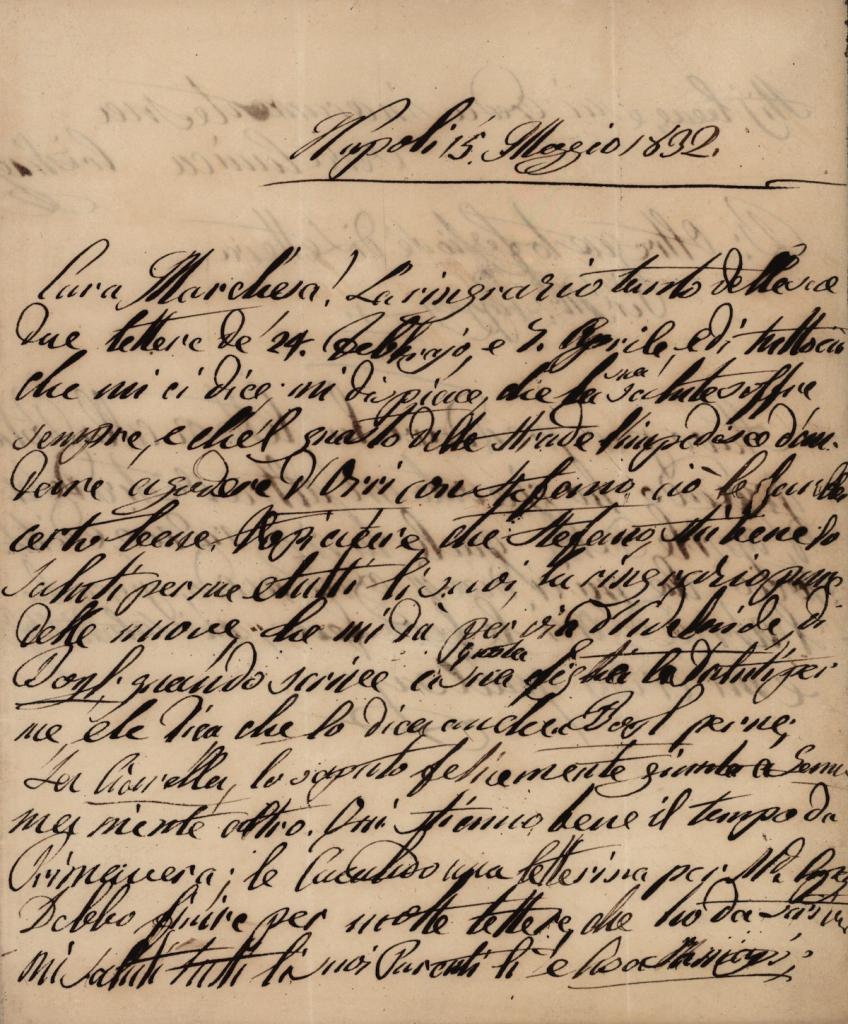 Napoli 15. Maggio 1832.
Cara Marchesa! La ringrazio tanto delle sue
due lettere de' 24. Febbrajo, e 5. Aprile, e di tutto ciò
che mi ci dice; mi dispiace, che la sua salute soffre
sempre, e che'l guasto delle strade l'impedisce d'an-
dare a godere d'Orri con Stefano, ciò le farebbe
certo bene. Ho piacere, che Stefano stà bene, lo
saluti per me e tutti li suoi, la ringrazio pure
delle nuove, che mi dà per via d'Adelaide, di
Bogl. quando scrive a questa sua figlia la saluti per
me, e le dica che lo dica anche a Bogl per me;
La Ciarella, lo saputo felicemente giunta a
ma niente altro. Qui stiamo bene il tempo da
Primavera; le una letterina per
Debbo finire per molte lettere, che ho da scrivere
mi saluti tutti li suoi Parenti lì e Casa